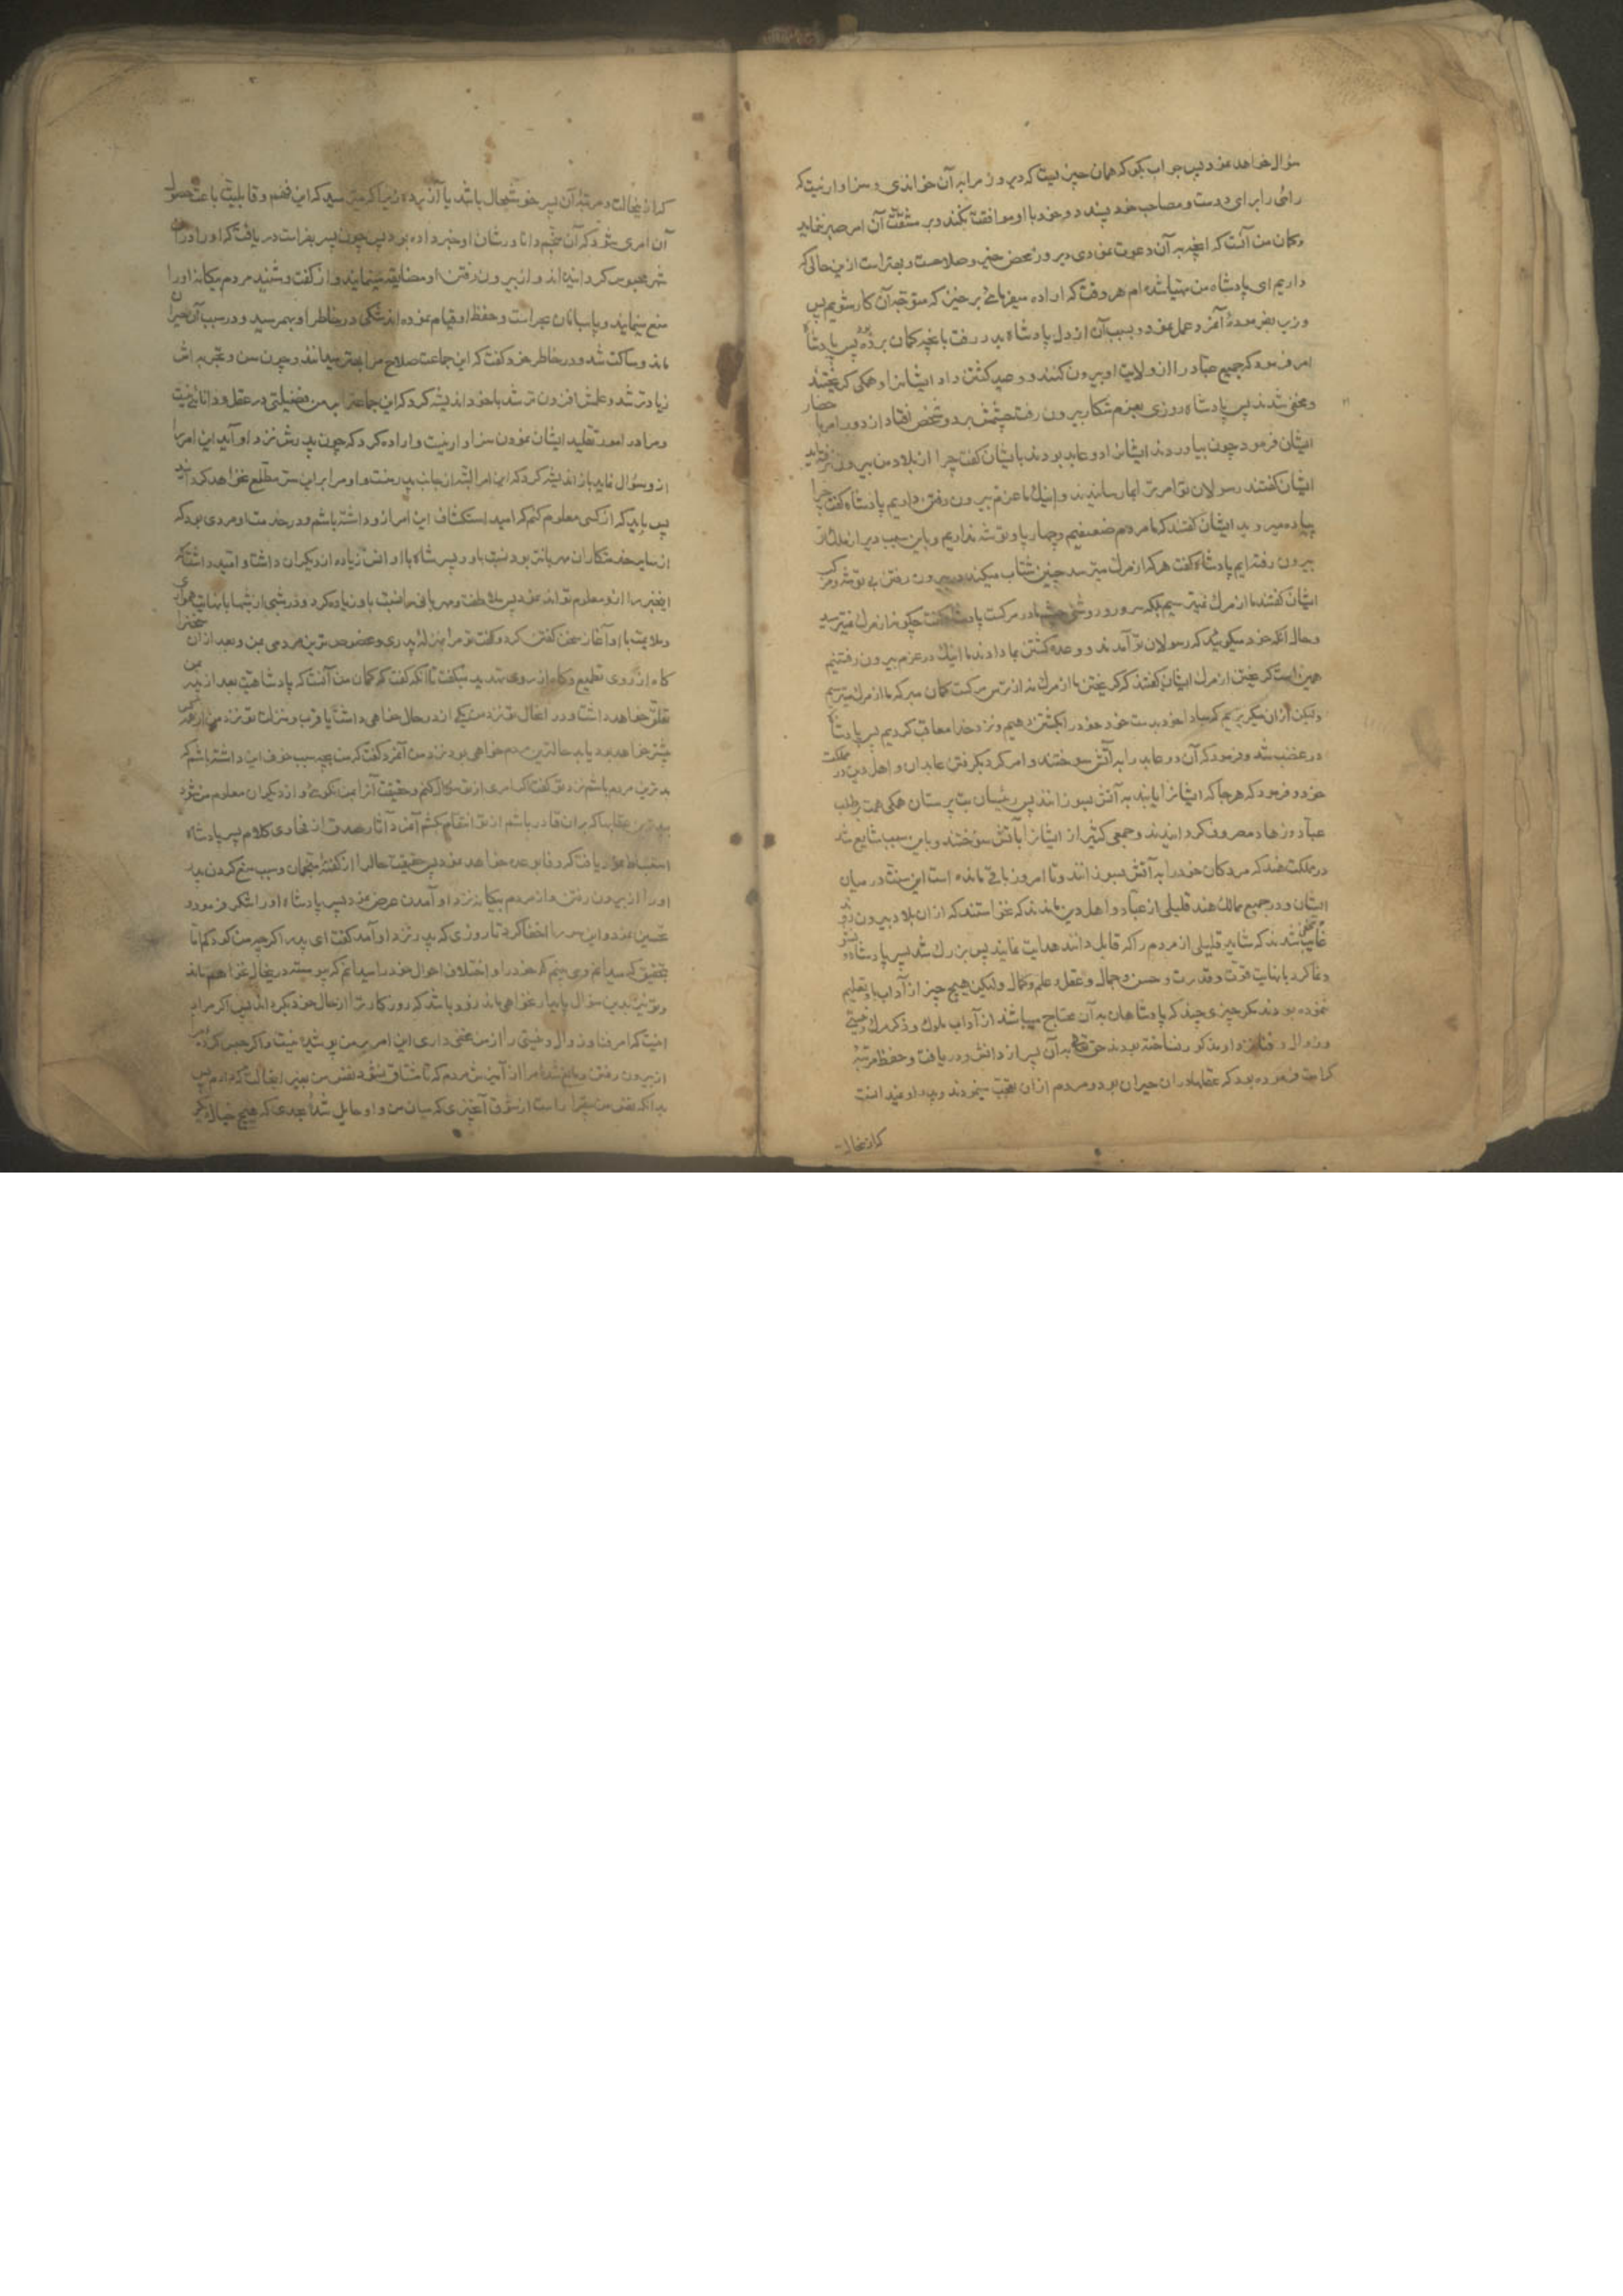 سؤال خواهد نمود پس جواب بگو که همان چیزیست که دیروز مرا به آن خواندی و سزاوار نیست که
رائی را برای دوست و مصاحب خود پسندد و خود با او موافقت نکند و بر مشقت آن امر صبر ننماید
و گمان من آنست که آنچه به آن دعوت نمودی دیروز محض خیر و صلاحست و بهتر است ازین حالی که
داریم ای پادشاه من مهیا شده ام هر وقت که اراده میفرمائی برخیز که متوجه آن کار شویم پس
وزیر بفرمودهٔ آنمرد عمل نمود و بسبب آن از دل پادشاه بدر رفت آنچه گمان برده بود پس پادشاه
امر فرمود که جمیع عباد را از ولایت او بیرون کنند و وعید کشتن داد ایشانرا و همگی گریختند
و مخفی شدند پس پادشاه روزی بعزم شکار بیرون رفت چشمش بر دو شخص افتاد از دور امر باحضار
ایشان فرمود چون بیاوردند ایشانرا دو عابد بودند بایشان گفت چرا از بلاد من بیرون نرفته‌اید
ایشان گفتند رسولان تو امر ترا بما رسانیدند و اینک ما عزم بیرون رفتن داریم پادشاه گفت چرا
پیاده میروید ایشان گفتند که ما مردم ضعیفیم و چهارپا و توشه نداریم و باین سبب دیر از ملک تو
بیرون رفته ایم پادشاه گفت هر که از مرگ میترسد چنین شتاب میکند در بیرون رفتن بی توشه و مرکب
ایشان گفتند ما از مرگ نمیترسیم بلکه سرور و روشنی چشم ما در مرگست پادشاه گفت چگونه از مرگ نمیترسید
و حال آنکه خود میگویید که رسولان تو آمدند و وعده کشتن بما دادند ما اینک در عزم بیرون رفتنیم
همین است گریختن از مرگ ایشان گفتند که گریختن ما از مرگ نه از ترس مرگست گمان مبر که ما از مرگ میترسیم
ولیکن از آن میگریزیم که مبادا خود بدست خود خود را بکشتن دهیم و نزد خدا معاقب گردیم پس پادشاه
در غضب شد و فرمود که آن دو عابد را به آتش سوختند و امر کرد بگرفتن عابدان و اهل دین در مملکت
خود و فرمود که هر جا که ایشانرا یابند به آتش بسوزانند پس رئیسان بت پرستان همگی همت بر طلب
عباد و زهاد مصروف گردانیدند و جمعی کثیر از ایشانرا بآتش سوختند و باین سبب شایع شد
در مملکت هند که مردگان خود را به آتش بسوزانند و تا امروز باقی مانده است این سنت در میان
ایشان و در جمیع ممالک هند قلیلی از عباد و اهل دین ماندند که نخواستند که از آن بلاد بیرون روند
غایب و مخفی شدند که شاید قلیلی از مردم را که قابل دانند هدایت نمایند پس بزرگ شد پسر پادشاه و نشو
و نما کرد با نهایت قوت و قدرت و حسن و جمال و عقل و علم و کمال ولیکن هیچ چیز از آداب باو تعلیم
ننموده بودند مگر چیزی چند که پادشاهان به آن محتاج میباشند از آداب ملوک و ذکر مرگ و نیستی
و زوال و فنا نزد او مذکور نساخته بودند حق تعالی به آن پسر از دانش و دریافت و حفظ مرتبهٔ
کرامت فرموده بود که عقلها در آن حیران بود و مردم از آن تعجب مینمودند و پدر او نمیدانست
که از ینحالت
که از ینحالت و مرتبهٔ آن پسر خوشحال باشد یا آزرده زیرا که میترسید که این فهم و قابلیت باعث حصول
آن امری شود که آن منجم دانا در شان او خبر داده بود پس چون پسر بفراست دریافت که او را در آن
شهر محبوس گردانیده اند و از بیرون رفتن او مضایقه مینمایند و از گفت و شنید مردم بیگانه او را
منع مینمایند و پاسبانان بحراست و حفظ او قیام نموده اند شکی در خاطر او بهم رسید و در سبب آن حیران
ماند و ساکت شد و در خاطر خود گفت که این جماعت صلاح مرا بهتر میدانند و چون سن و تجربه اش
زیادتر شد و علمش افزون تر شد با خود اندیشه کرد که این جماعت را بر من فضیلتی در عقل و دانائی نیست
و مرا در امور تقلید ایشان نمودن سزاوار نیست و اراده کرد که چون پدرش نزد او آید این امر را
از و سؤال نماید باز اندیشه کرد که این امر البته از جانب پدر منست و او مرا بر این سر مطلع نخواهد گردانید
پس باید که از کسی معلوم کنم که امید استکشاف این امر ازو داشته باشم و در خدمت او مردی بود که
از سایر خدمتکاران مهربانتر بود نسبت باو و پسر شاه با او انس زیاده از دیگران داشت و امید داشت که
اینخبر را از و معلوم تواند نمود پس ملاطفت و مهربانی را نسبت باو زیاده کرد و در شبی از شبها با نهایت همواری
و ملایمت با او آغاز سخن گفتن کرد و گفت تو مرا بمنزلهٔ پدری و مخصوص ترین مردمی بمن و بعد از آن سخنرا
گاه از روی تطمیع و گاه از روی تهدید میگفت تا آنکه گفت که گمان من آنست که پادشاهی بعد از پدر بمن
تعلق خواهد داشت و در آنحال تو نزد من یکی از دو حال خواهی داشت یا قرب و منزلت تو نزد من از همه کس
بیشتر خواهد بود یا بدحالترین مردم خواهی بود نزد من آنمرد گفت که من بچه سبب خوف این داشته باشم که
بدترین مردم باشم نزد تو گفت اگر امری از تو سؤال کنم و حقیقت آنرا بمن نگوئی و از دیگران معلوم من شود
ببدترین عقابها که بر آن قادر باشم از تو انتقام بکشم آنمرد آثار صدق از فحاوی کلام پسر پادشاه
استنباط نمود و یافت که وفا بوعده خواهد نمود پس حقیقت حال را از گفتهٔ منجمان و سبب منع کردن پدر
او را از بیرون رفتن و از مردم بیگانه نزد او آمدن عرض نمود پس پادشاه زاده او را شکر فرمود و
تحسین نمود و این سر را اخفا کرد تا روزی که پدر نزد او آمد گفت ای پدر اگر چه من کودکم اما
بتحقیق که میدانم و می بینم که خود را و اختلاف احوال خود را میدانم که پیوسته در ینحال نخواهم ماند
و تو نیز بدین منوال پایدار نخواهی ماند و زود باشد که روزگار ترا از حال خود بگرداند پس اگر مراد
اینست که امر فنا و زوال و نیستی را از من مخفی داری این امر بر من پوشیده نیست و اگر حبس کردهٔ مرا
از بیرون رفتن و مانع شدهٔ مرا از آمیزش مردم که تا مشتاق نشود نفس من بغیر اینحالت که دارم پس
بدانکه نفس من بیقرار است از شوق آنچیزی که میان من و او حایل شدهٔ بحدی که هیچ خیال دیگر